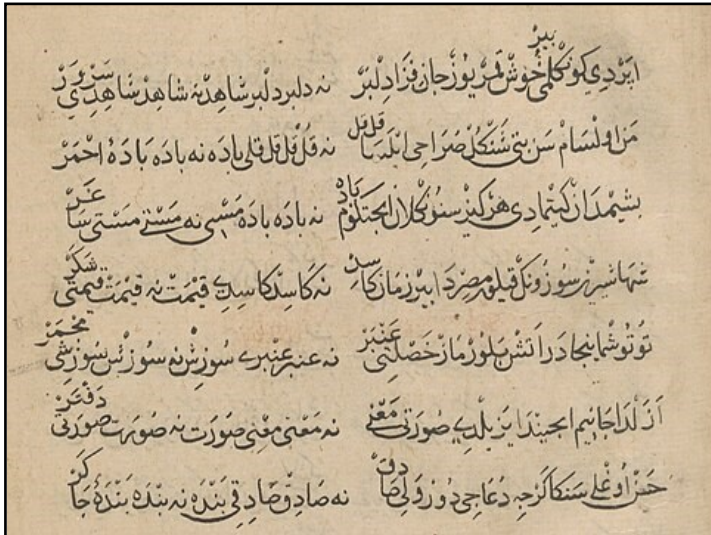 اپردی کونکلمی بیر خوش قمر یوز جان فزا دلبر نه دلبر دلبر شاهد نه شاهد شاهدی سرور
من اولسام سن بتی شنکل صراحی ایلمه قل قل نه قل قل قل قلی باده نه باده بادهٔ احمر
بشیمدان کیتمادی هرکیز سنونکلان ایجتکلوم باده نه باده بادهٔ مستی نه مستی مستی ساغر
شها شیرین سوزونک قیلور مصردا بیر زمان کاسد نه کاسد کاسدی قیمت نه قیمت قیمتی شکر
توتوشماینجا در اتش بلورماز خصلتی عنبر نه عنبر عنبری سوزش نه سوزش سوزشی مجمر
ازلدا جانیم ایجیندا یزیلدی صورتی معنی نه معنی معنی صورت نه صورت صورتی دفتر
حسن اوغلی سنکا کرجه دعاجی دور ولی صادق نه صادق صادقی بنده نه بنده بندهٔ جاکر